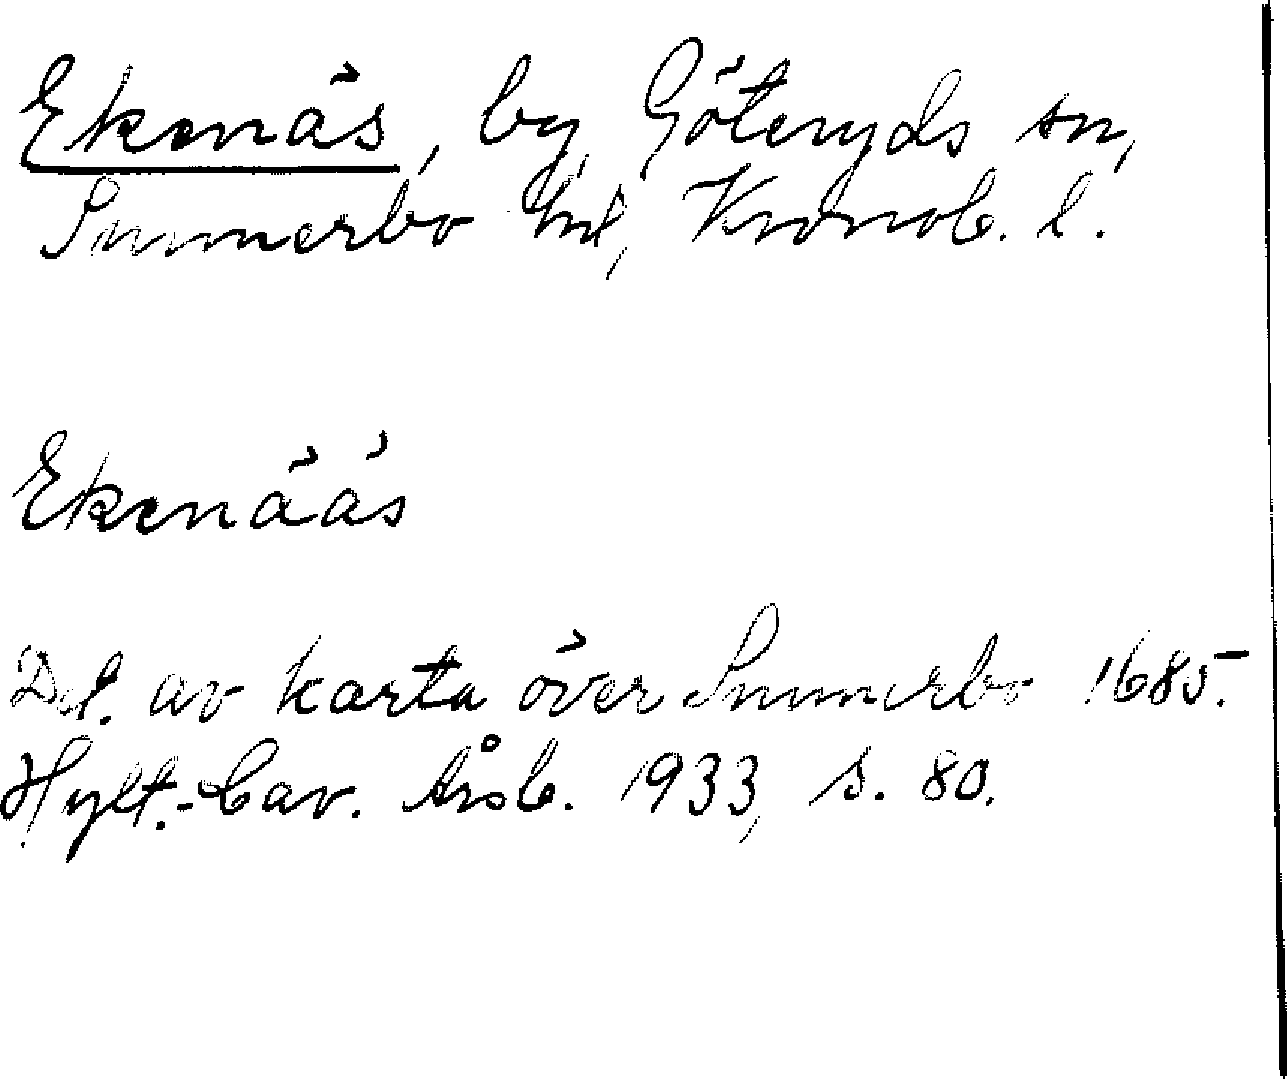 Ekenäs, by, Göteryds sn,
Sunnerbo hd, Kronob. l.
Ekenääs
Del. av karta över Sunnerbo 1685.
Hylt.-Cav. Årsb. 1933, s. 80.